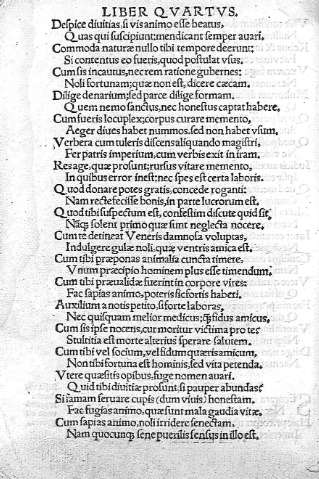 LIBER QVARTVS.
Despice diuitias, si vis animo esse beatus,
Quas qui suscipiunt, mendicant semper auari.
Commoda naturæ nullo tibi tempore deerunt;
Si contentus eo fueris, quod postulat vsus.
Cum sis incautus, nec rem ratione gubernes;
Noli fortunam, quæ non est, dicere cæcam.
Dilige denarium, sed parce dilige formam.
Quem nemo sanctus, nec honestus captat habere.
Cum fueris locuplex, corpus curare memento,
Aeger diues habet nummos, sed non habet vsum.
Verbera cum tuleris discens aliquando magistri,
Fer patris imperium, cum verbis exit in iram.
Res age, quæ prosunt; rursus vitare memento.
In quibus error inest; nec spes est certa laboris.
Quod donare potes gratis, concede roganti:
Nam recte fecisse bonis, in parte lucrorum est.
Quod tibi suspectum est, confestim discute quid sit,
Nāq; solent primo quæ sunt neglecta nocere.
Cum te detineat Veneris damnosa voluptas,
Indulgere gulæ noli, quæ ventris amica est.
Cum tibi præponas animalia cuncta timere,
Vnum præcipio hominem plus esse timendum.
Cum tibi præualidæ fuerint in corpore vires:
Fac sapias animo, poteris sic fortis haberi.
Auxilium a notis petito, si forte laboras,
Nec quisquam melior medicus, q̄ fidus amicus.
Cum sis ipse nocens, cur moritur victima pro te?
Stultitia est morte alterius sperare salutem.
Cum tibi vel socium, vel fidum quæris amicum,
Non tibi fortuna est hominis, sed vita petenda.
Vtere quæsitis opibus, fuge nomen auari.
Quid tibi diuitiæ prosunt, si pauper abundas?
Si famam seruare cupis (dum viuis) honestam.
Fac fugias animo, quæ sunt mala gaudia vitæ.
Cum sapias animo, noli irridere senectam.
Nam quocunq; sene puerilis sensus in illo est.